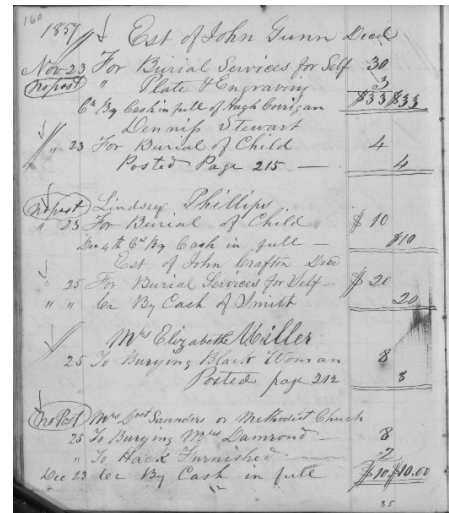 160
1857 Est of John Gunn Decd
Nov 23 For Burial Services for Self 30
No post " Plate & Engraving 3
Cr By Cash in full of Hugh Corrigan $33 $33
Denniss Stewart
" 23 For Burial of Child 4
Posted Page 215 — 4
No post Lindsey Phillips
" 23 For Burial of Child $10
Dec 4th Cr By Cash in full — $10
Est of John Crafton Decd
" 25 For Burial Services for Self $20
" " Cr By Cash of 20
Mrs Elizabeth Miller
25 To Burying Black Woman 8
Posted page 212 8
No Post Mrs Saunders or Methodist Church
25 To Burying Mrs Damrond — 8
" To Hack Furnished — 2
Dec 23 Cr By Cash in full $10 $10.00